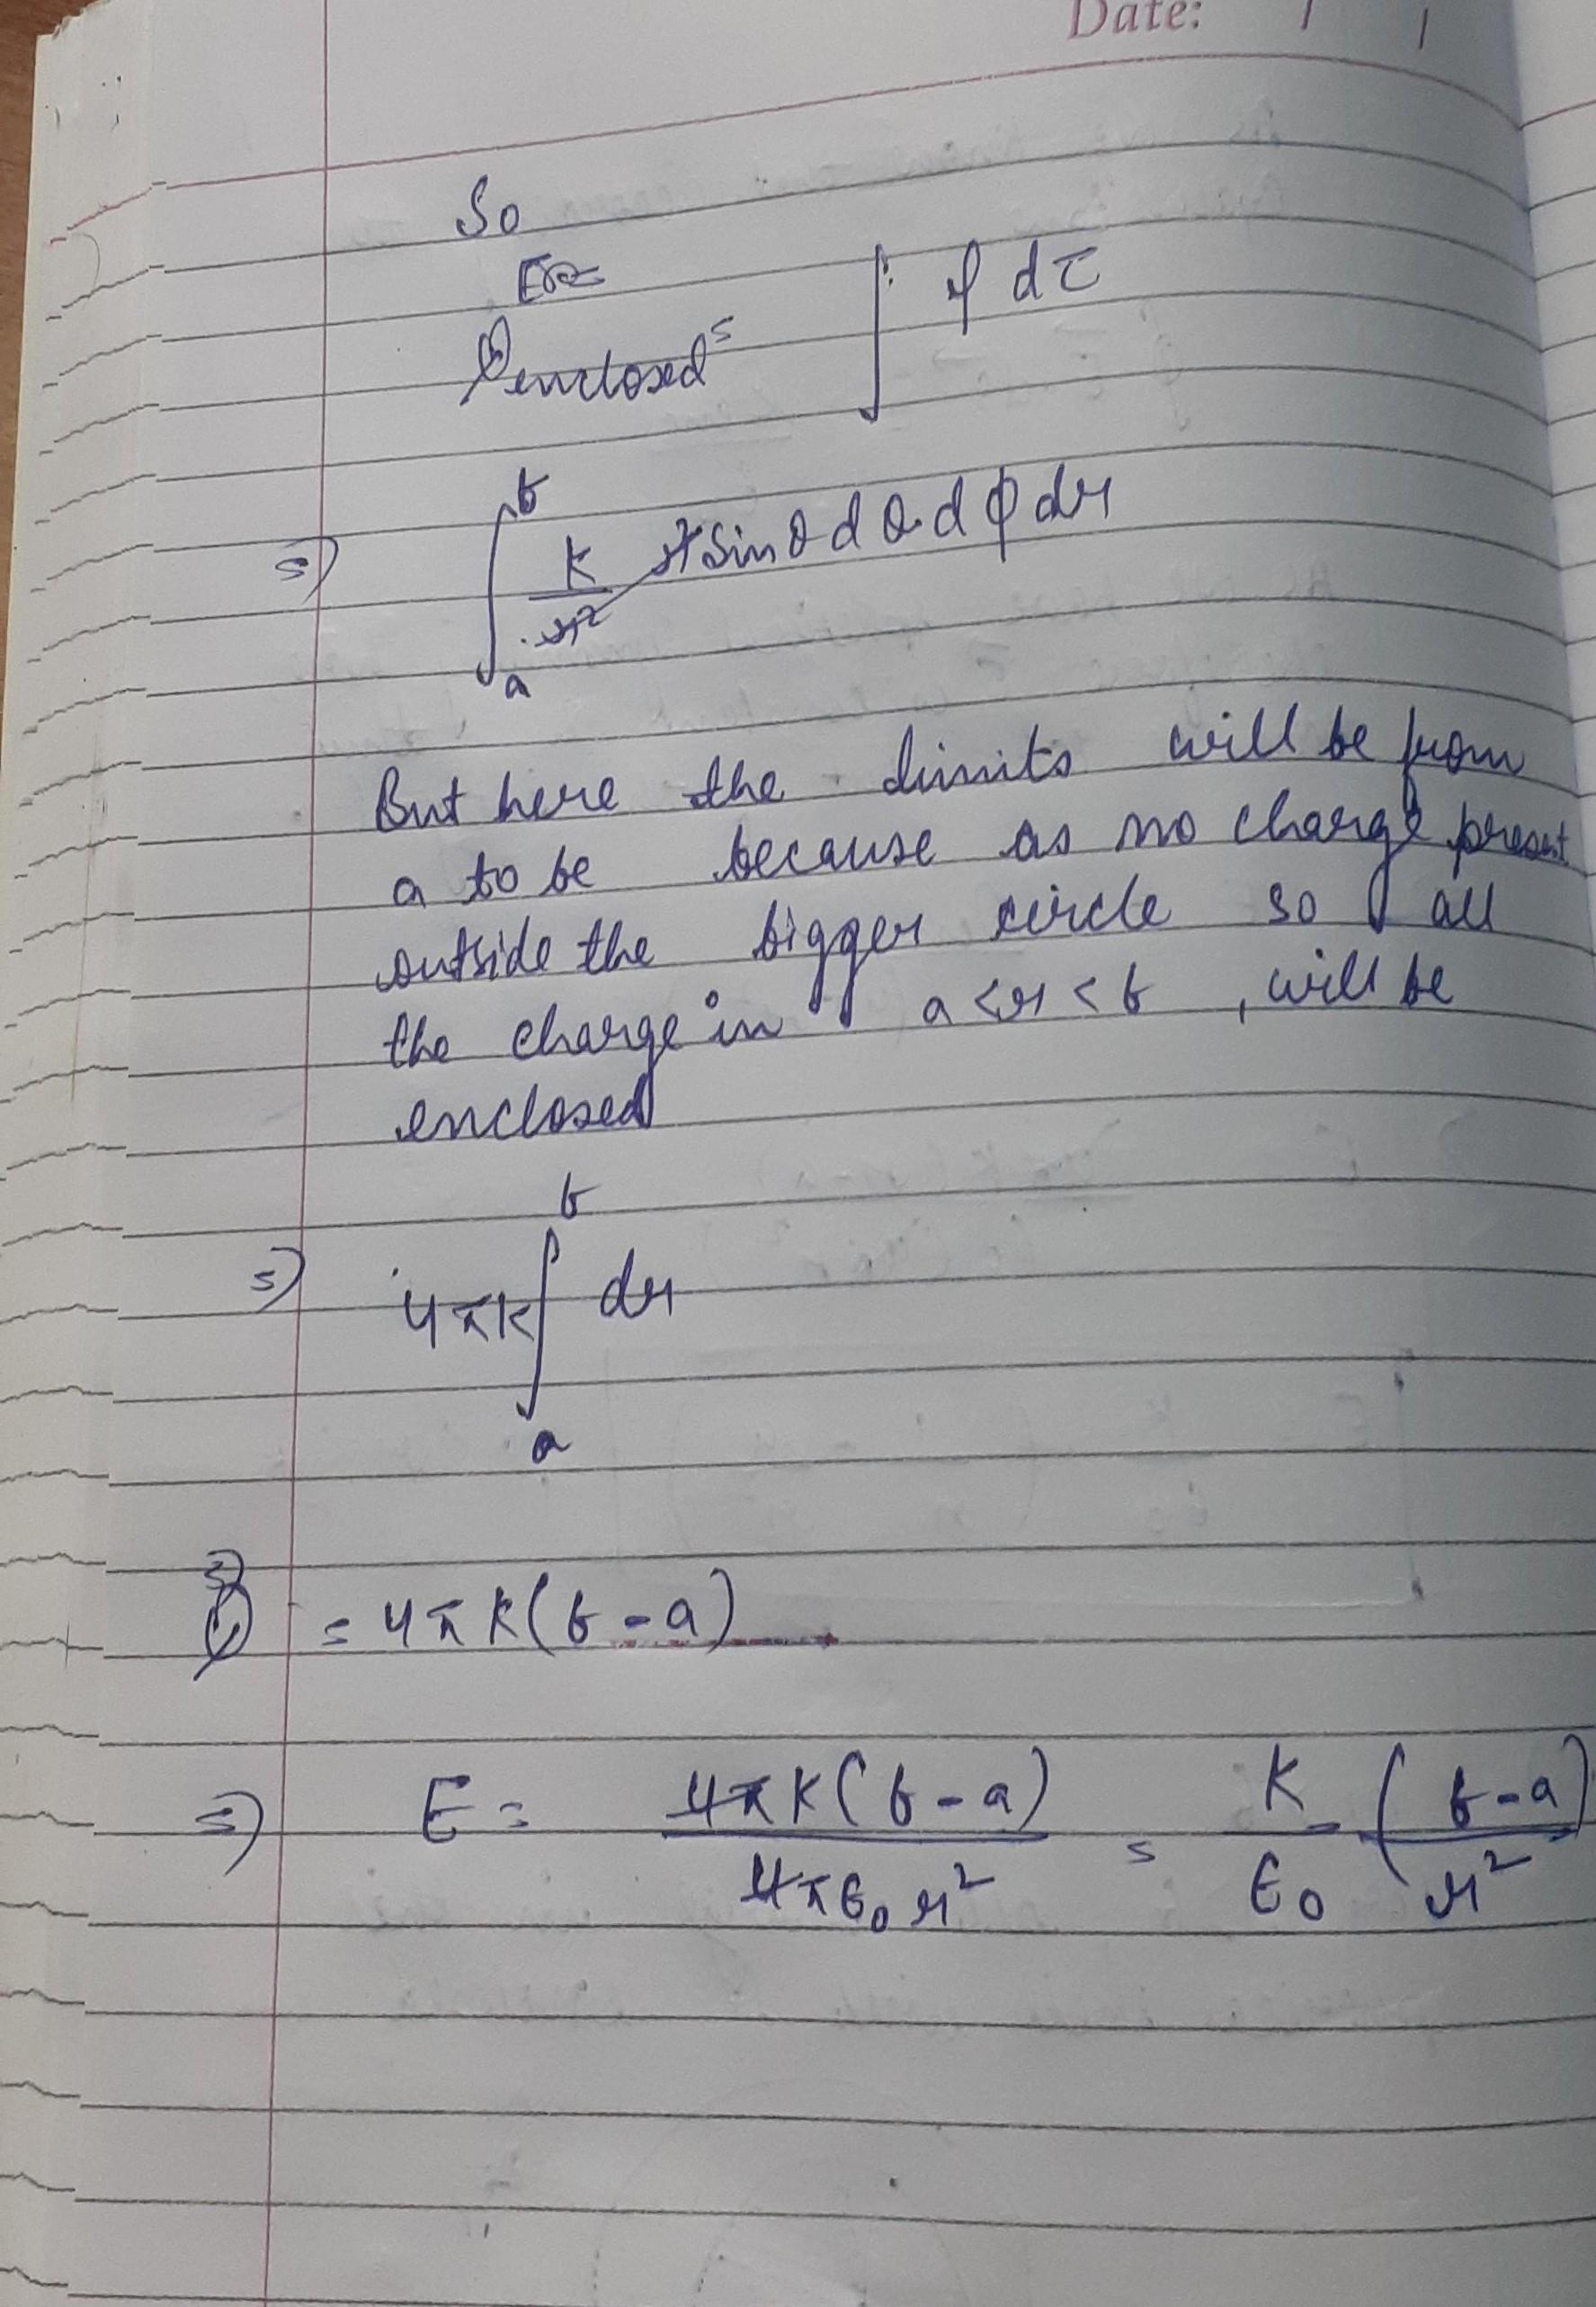 Date: / /
So
Qenclosed = ∫ ρ dτ
=) ∫ₐᵇ k/r² r² sinθ dθ dφ dr
But here the limits will be from
a to be because as no charge present
outside the bigger circle so all
the charge in a < r < b , will be
enclosed
=) 4πk ∫ₐᵇ dr
Q = 4πk(b-a)
=) E = 4πk(b-a)/4πε₀r² = k/ε₀ (b-a)/r²